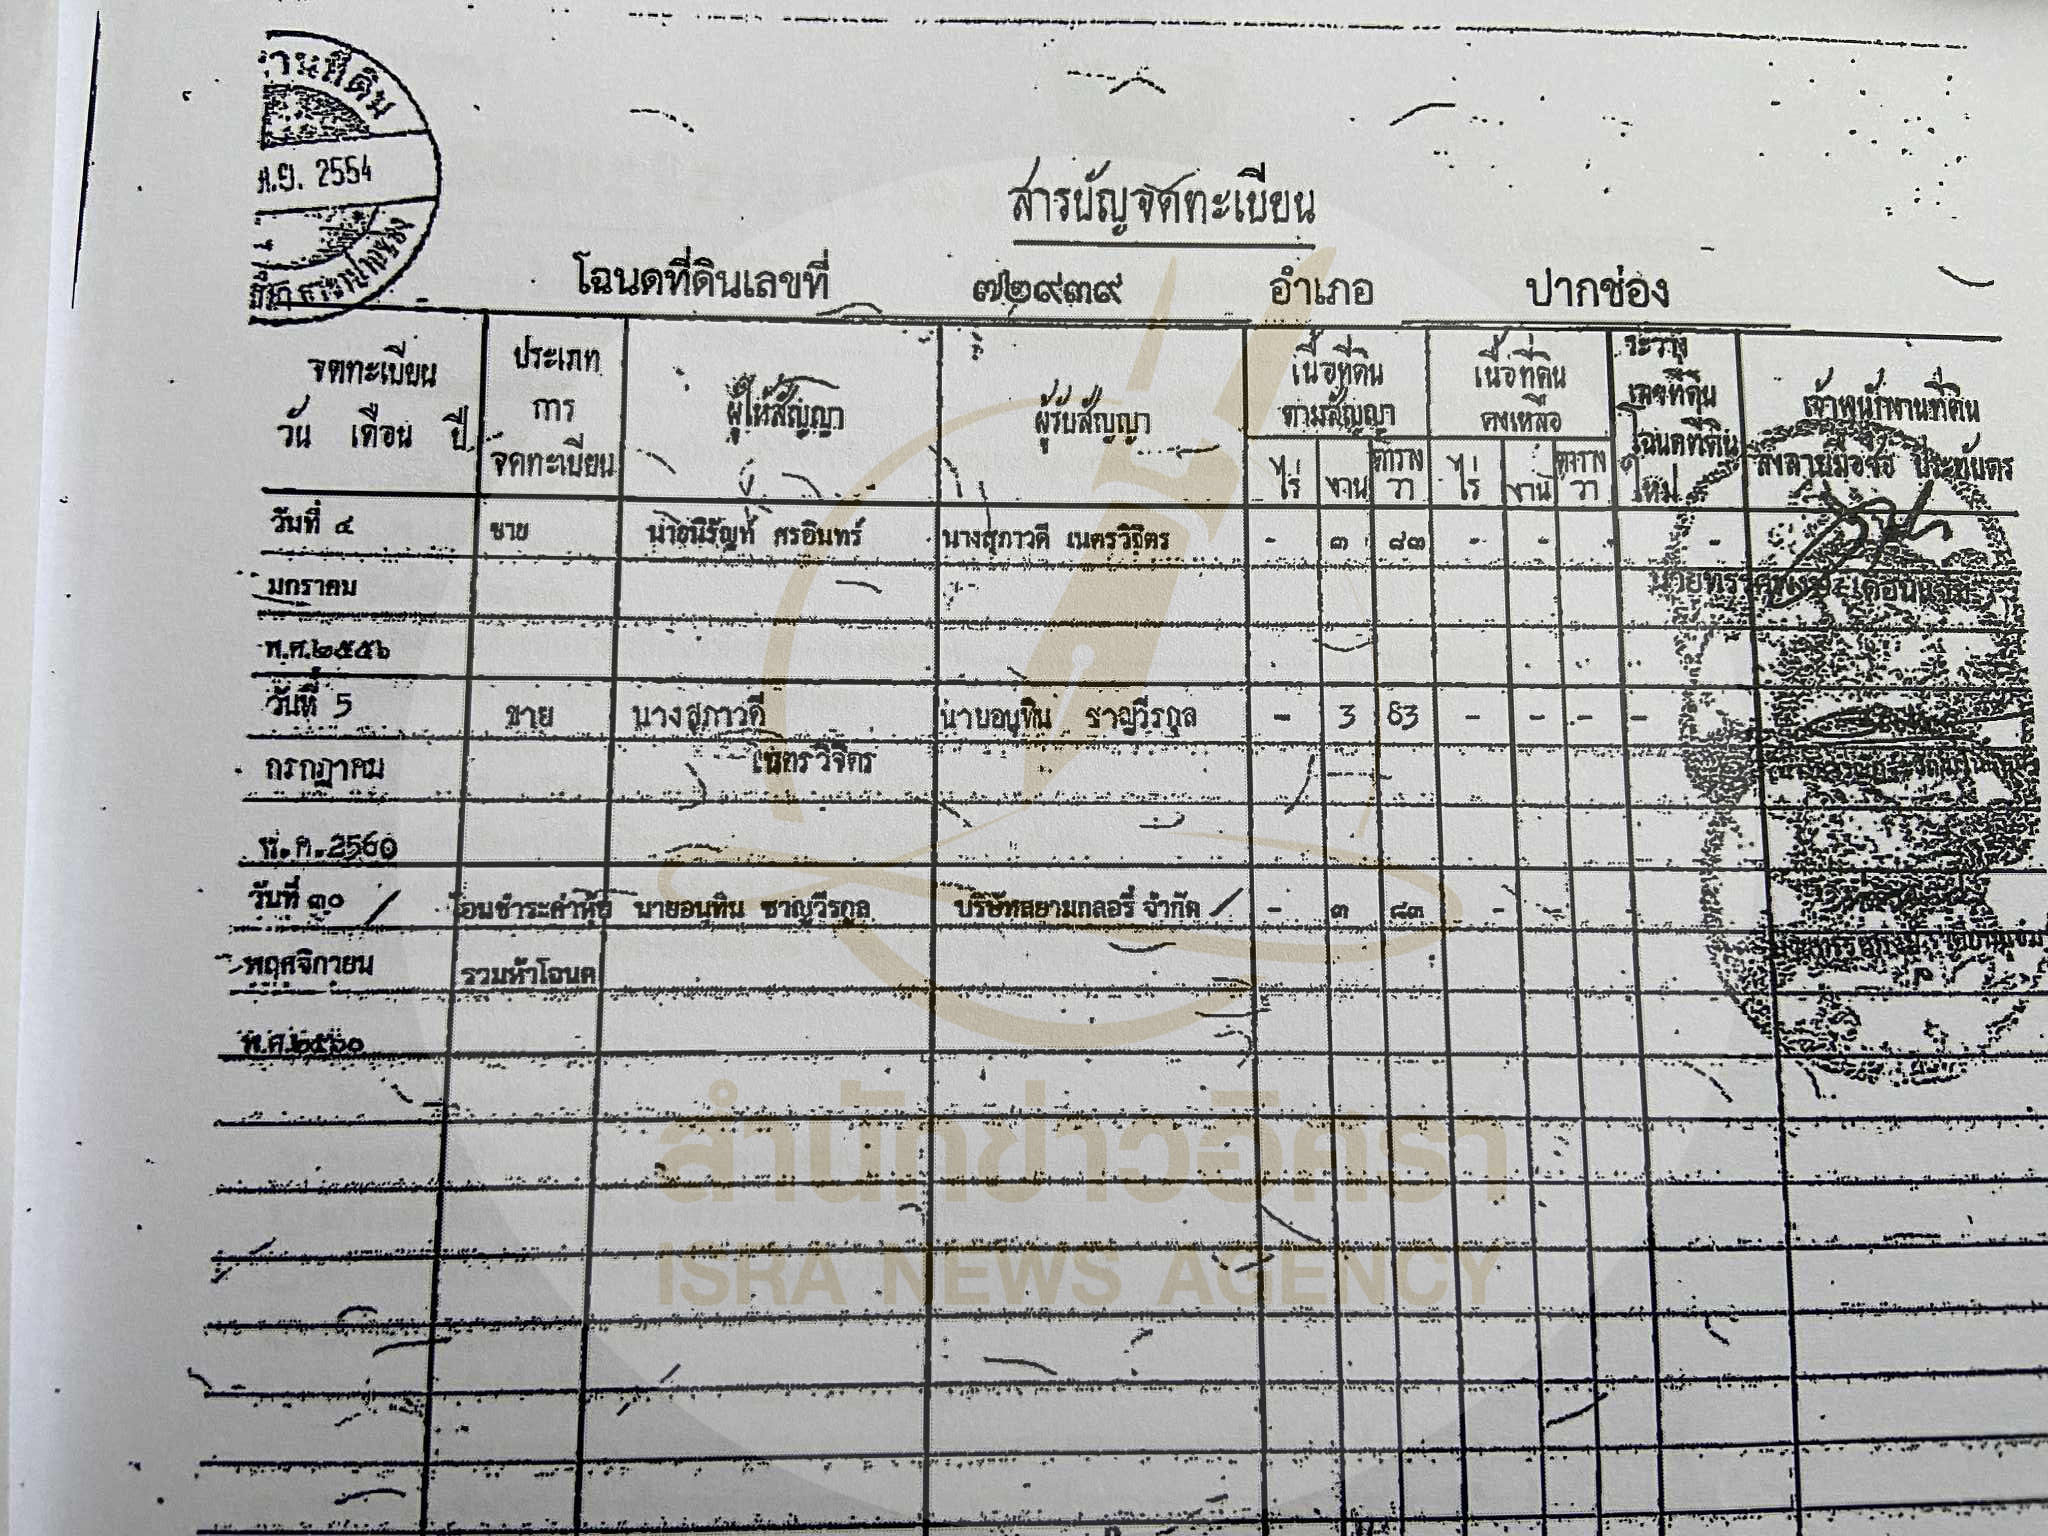 านที่ดิน
ย. 2554
สารบัญจดทะเบียน
โฉนดที่ดินเลขที่ ๗๒๙๓๙ อำเภอ ปากช่อง
จดทะเบียน
วัน เดือน ปี
ประเภท
การ
จดทะเบียน
ผู้ให้สัญญา
ผู้รับสัญญา
เนื้อที่ดิน
ตามสัญญา
ไร่ งาน ตาราง
วา
เนื้อที่ดิน
คงเหลือ
ไร่ งาน ตาราง
วา
ระวาง
เลขที่ดิน
โฉนดที่ดิน
ใหม่
เจ้าพนักงานที่ดิน
ลงลายมือชื่อ ประทับตรา
วันที่ ๔ ขาย นายนิรัญท์ ศรอินทร์ นางสุภาวดี เนตรวิจิตร - ๓ ๘๓ - - - -
มกราคม
พ.ศ.๒๕๕๖
วันที่ 5 ขาย นางสุภาวดี นายอนุทิน ชาญวีรกูล - 3 83 - - - -
กรกฎาคม เนตรวิจิตร
พ.ศ.2560
วันที่ ๓๐ โอนชำระค่าหุ้น นายอนุทิน ชาญวีรกูล บริษัทสยามกลอรี่ จำกัด - ๓ ๘๓ - - -
พฤศจิกายน รวมห้าโฉนด
พ.ศ.๒๕๖๐
สำนักข่าวอิศรา
ISRA NEWS AGENCY